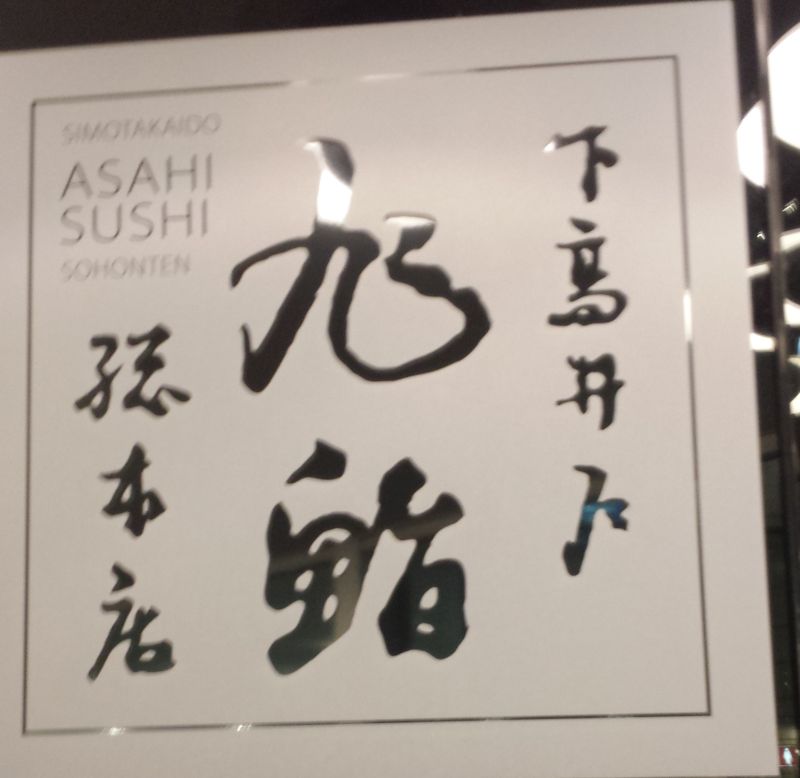 下高井戸
旭鮨
総本店
SIMOTAKAIDO
ASAHI
SUSHI
SOHONTEN